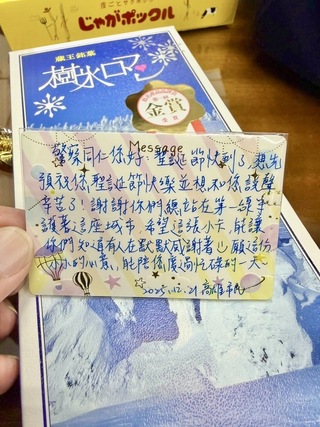 皮ごとサクッと
じゃがポックル
蔵王銘菓
樹氷ロマン
金賞
受賞
Message
警察同仁你好：聖誕節快到了，想先
預祝你聖誕節快樂並想和你說聲
辛苦了！謝謝你們總站在第一線守
護著這座城市，希望這張小卡能讓
你們知道有人在默默感謝著☺願這份
小小的心意，能陪你度過忙碌的一天
2025.12.21 高雄市民